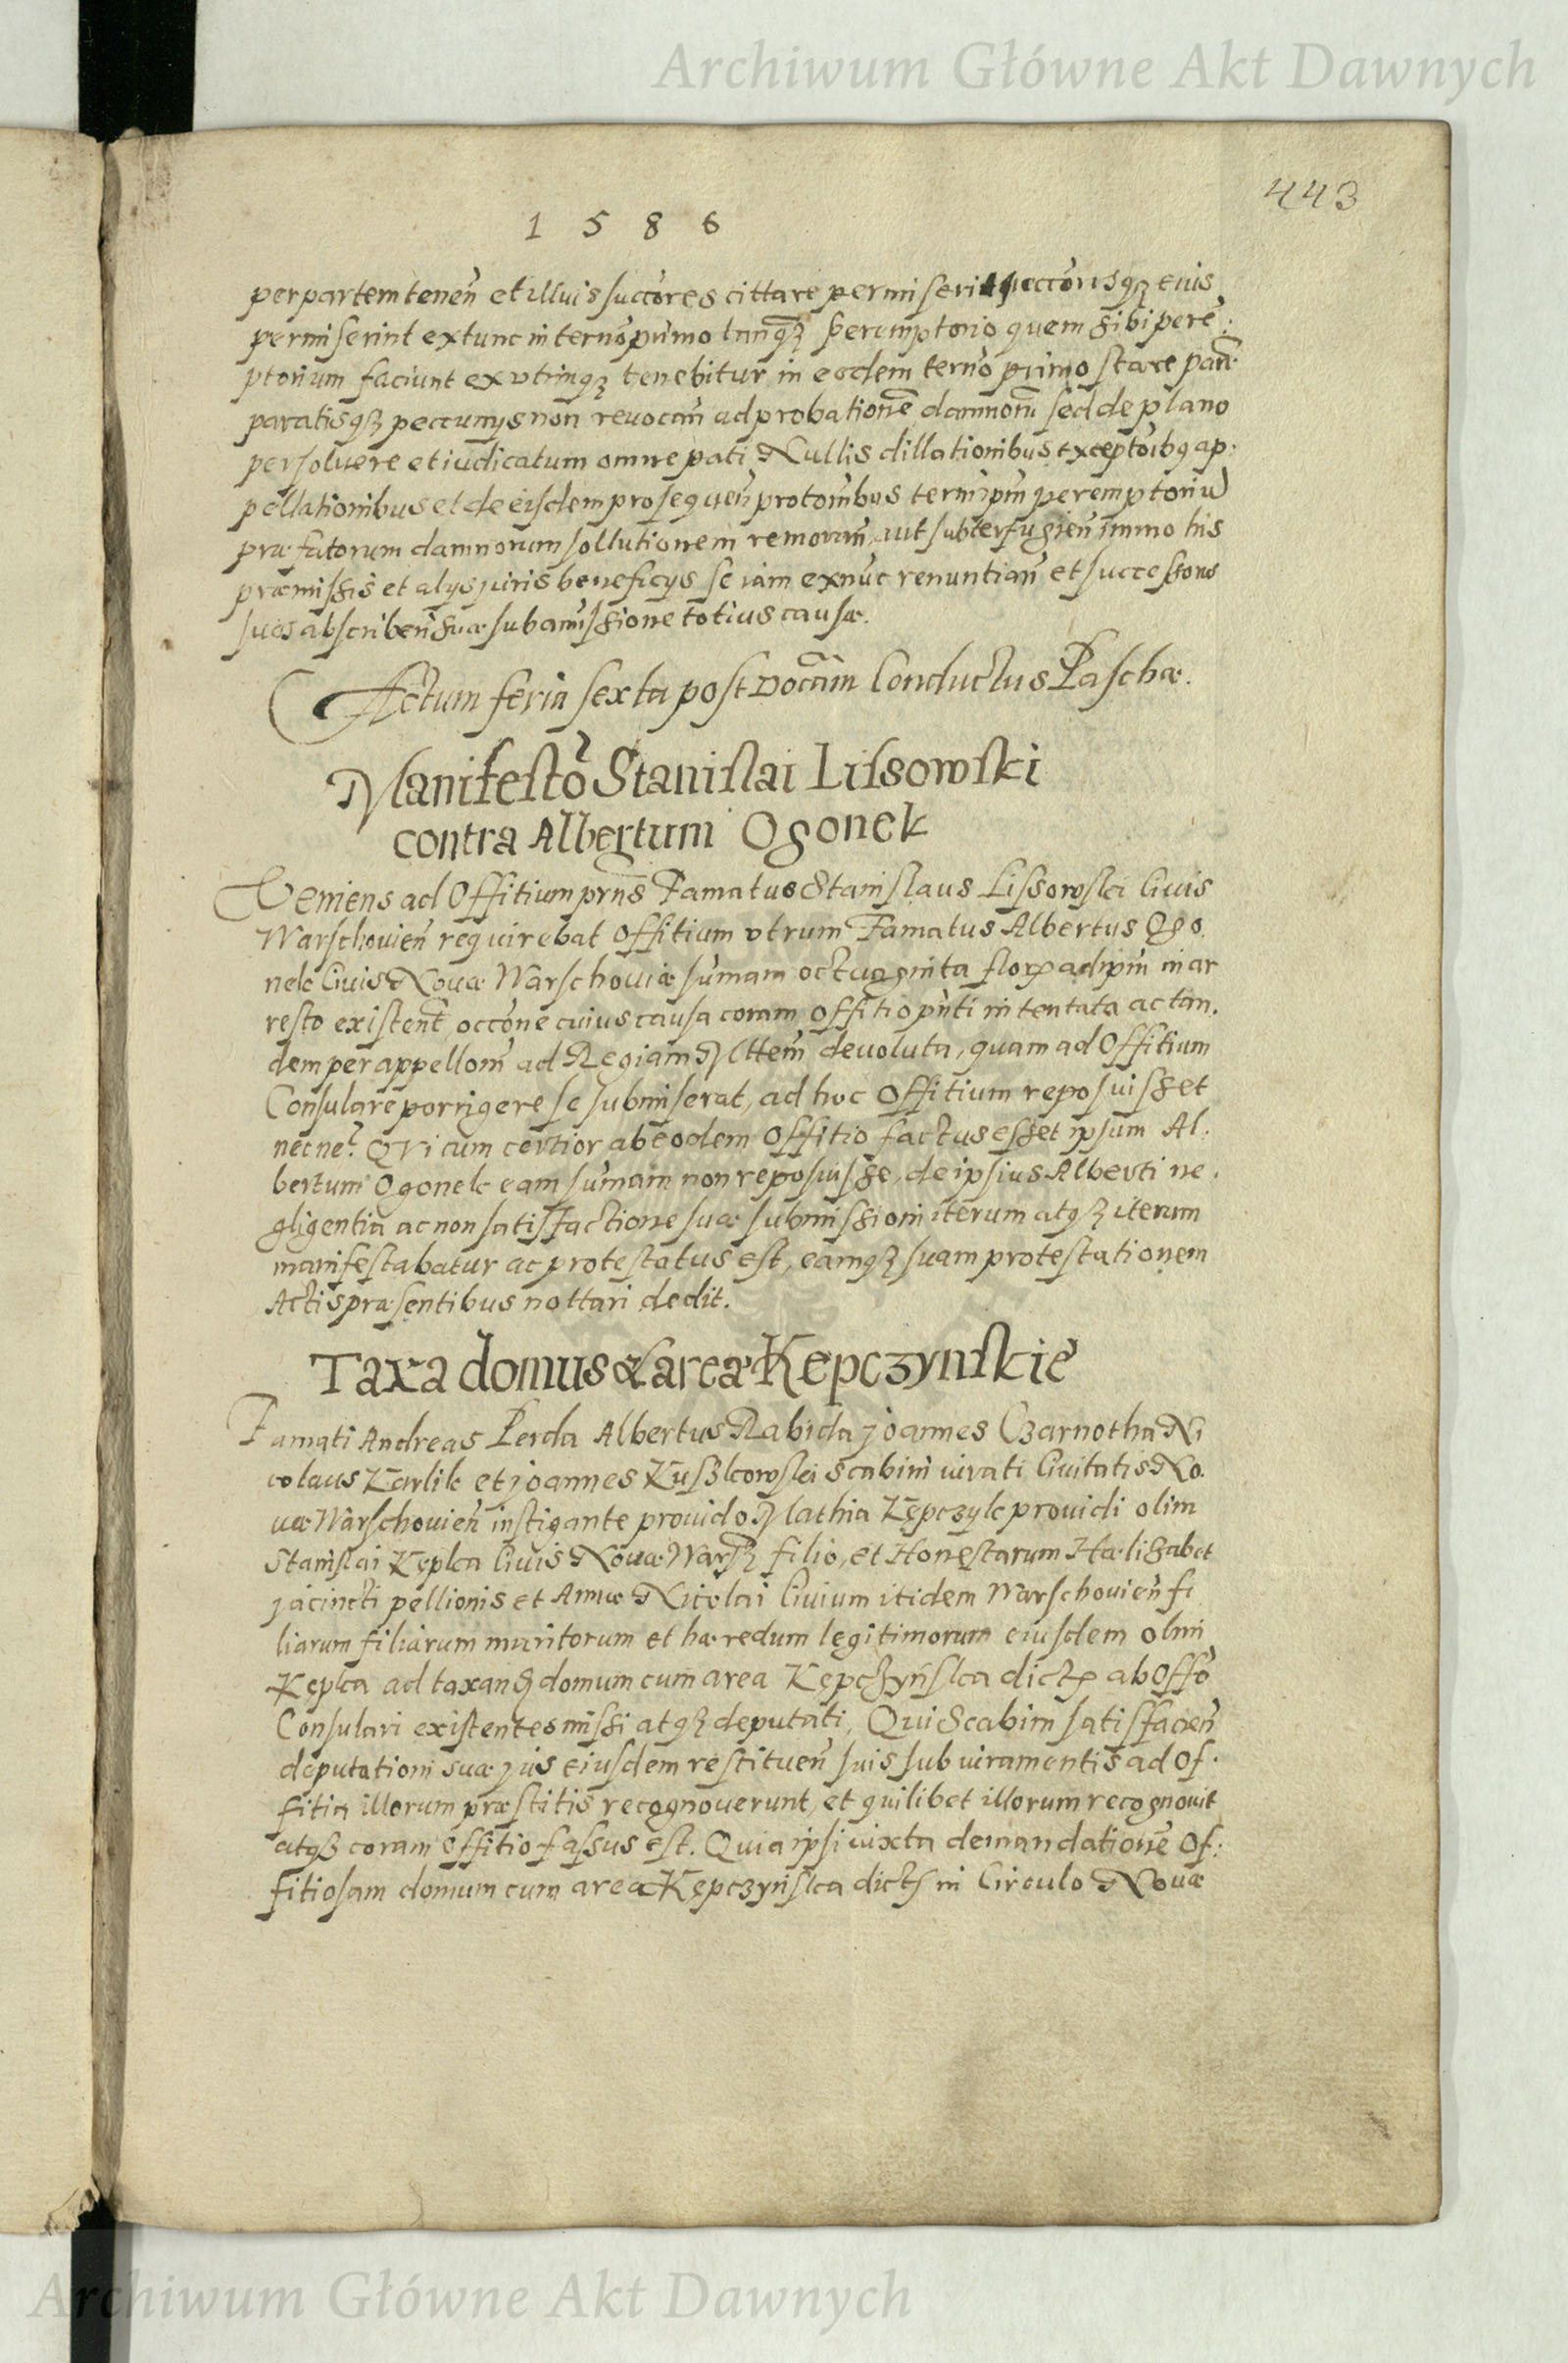 Archiwum Główne Akt Dawnych
443
1 5 8 6
per partem tenen̄ et illius succōres cittare permiserit succōrisqꝫ eius
permiserint extunc in termō primo tanqꝫ peremptorio quem sibi perē:
ptorium faciunt ex vtrinqꝫ tenebitur in eodem termō primo stare parē
paratisqꝫ peccunijs non reuocan̄ ad probationē damnorū sed de plano
persoluere et iudicatum omne pati Nullis dillationibus exceptōibq ap:
pellationibus et de eisdem prosequen̄ protōnibus terminum̄ peremptoriū
præfatorum damnorum sollutionem remoran̄, aut subterfugien̄ immo his
præmissis et alijs iuris beneficijs se iam exnūc renuntian̄ et successores
suos abscriben̄ suæ sub amissione totius causæ.
Actum feria sexta post Docām Conductus Paschæ.
Manifestō Stanislai Lissowski
contra Albertum Ogonek
Veniens ad Offitium prns Famatus Stanislaus Lissowski Ciuis
Warschouien̄ requirebat Offitium vtrum Famatus Albertus Ogo
nek Ciuis Nouæ Warschouiæ sumam octuaginta flor adipm̄ in ar
resto existent̄, occōne cuius causa coram offitio pnti intentata ac tan.
dem per appellom̄ ad Regiam Mttem̄ deuoluta, quam ad Offitium
Consulare porrigere se submiserat, ad hoc Offitium reposuisset
necne? Qui cum certior ab eodem Offitio factus esset ipsum Al.
bertum Ogonek eam sumam non reposuisse, de ipsius Alberti ne.
gligentia ac non satisfactione suæ submissioni iterum atqꝫ iterum
manifestabatur ac protestatus est, eamqꝫ suam protestationem
Actis præsentibus nottari dedit.
Taxa domus & areæ Kępczynskie
Famati Andreas Perda Albertus Rabida Joannes Czarnotha Ni
colaus Karlik et Joannes Kuszkowski scabini iurati Ciuitatis No.
uæ Warschouien̄ instigante prouido Mathia Kępczyk prouidi olim
Stanislai Kępka Ciuis Nouæ Warsz filio, et Honestarum Hælizabet
Jacincti pellionis et Annæ Nicolai Ciuium itidem Warschouien̄ fi
liarum filiarum maritorum et hæredum legitimorum eiusdem olim
Kępka ad taxandꝫ domum cum area Kępczyńska dict ab Offō
Consulari existentes missi atqꝫ deputati, Qui Scabini satisfacien̄
deputationi suæ jus eiusdem restituen̄ suis sub iuramentis ad Of.
fitia illorum præstitis recognouerunt, et quilibet illorum recognouit
atqꝫ coram Offitio fassus est. Quia ipsi iuxta demandationē Of:
fitiosam domum cum area Kępczyńska dict in Circulo Nouæ
Archiwum Główne Akt Dawnych